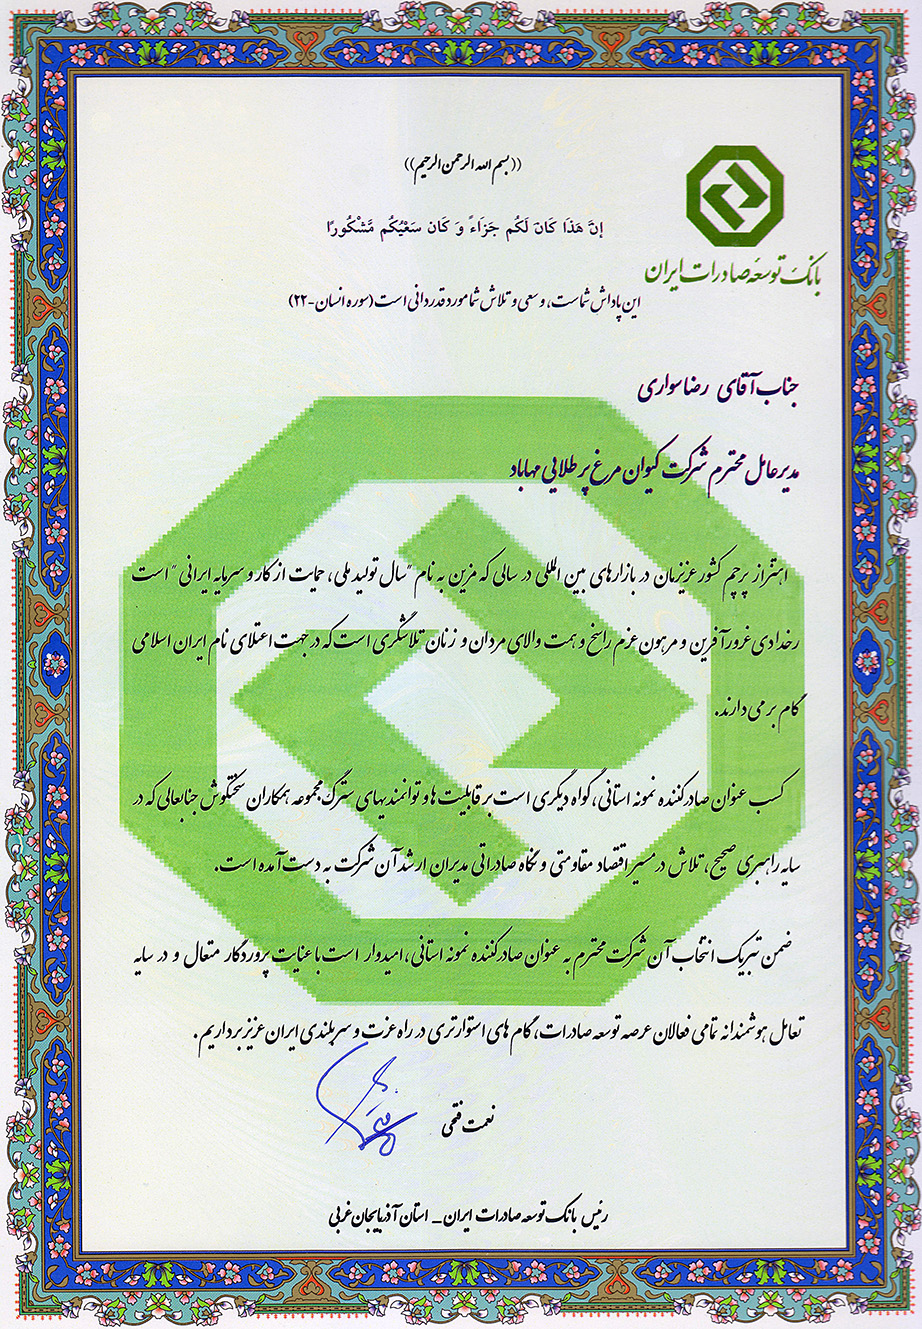 ((بسم الله الرحمن الرحیم))
إِنَّ هَذَا كَانَ لَكُم جَزَاءً وَ كَان سَعْيُكُم مَّشْكُورًا
بانک توسعه صادرات ایران
این پاداش شماست، و سعی و تلاش شما مورد قدردانی است (سوره انسان-۲۲)
جناب آقای رضا سواری
مدیرعامل محترم شرکت کیوان مرغ پر طلایی مهاباد
اهتزاز پرچم کشور عزیزمان در بازارهای بین المللی در سالی که مزین به نام "سال تولید ملی، حمایت از کار و سرمایه ایرانی" است
رخدادی غرورآفرین و مرهون عزم راسخ و همت والای مردان و زنان تلاشگری است که در جهت اعتلای نام ایران اسلامی
گام بر می دارند.
کسب عنوان صادرکننده نمونه استانی، گواه دیگری است بر قابلیت ها و توانمندیهای سترگ مجموعه همکاران سختکوش جنابعالی که در
سایه راهبری صحیح، تلاش در مسیر اقتصاد مقاومتی و نگاه صادراتی مدیران ارشد آن شرکت به دست آمده است.
ضمن تبریک انتخاب آن شرکت محترم به عنوان صادرکننده نمونه استانی، امیدوار است با عنایت پروردگار متعال و در سایه
تعامل هوشمندانه تمامی فعالان عرصه توسعه صادرات، گام های استوارتری در راه عزت و سربلندی ایران عزیز برداریم.
نعمت فقهی
رئیس بانک توسعه صادرات ایران_ استان آذربایجان غربی